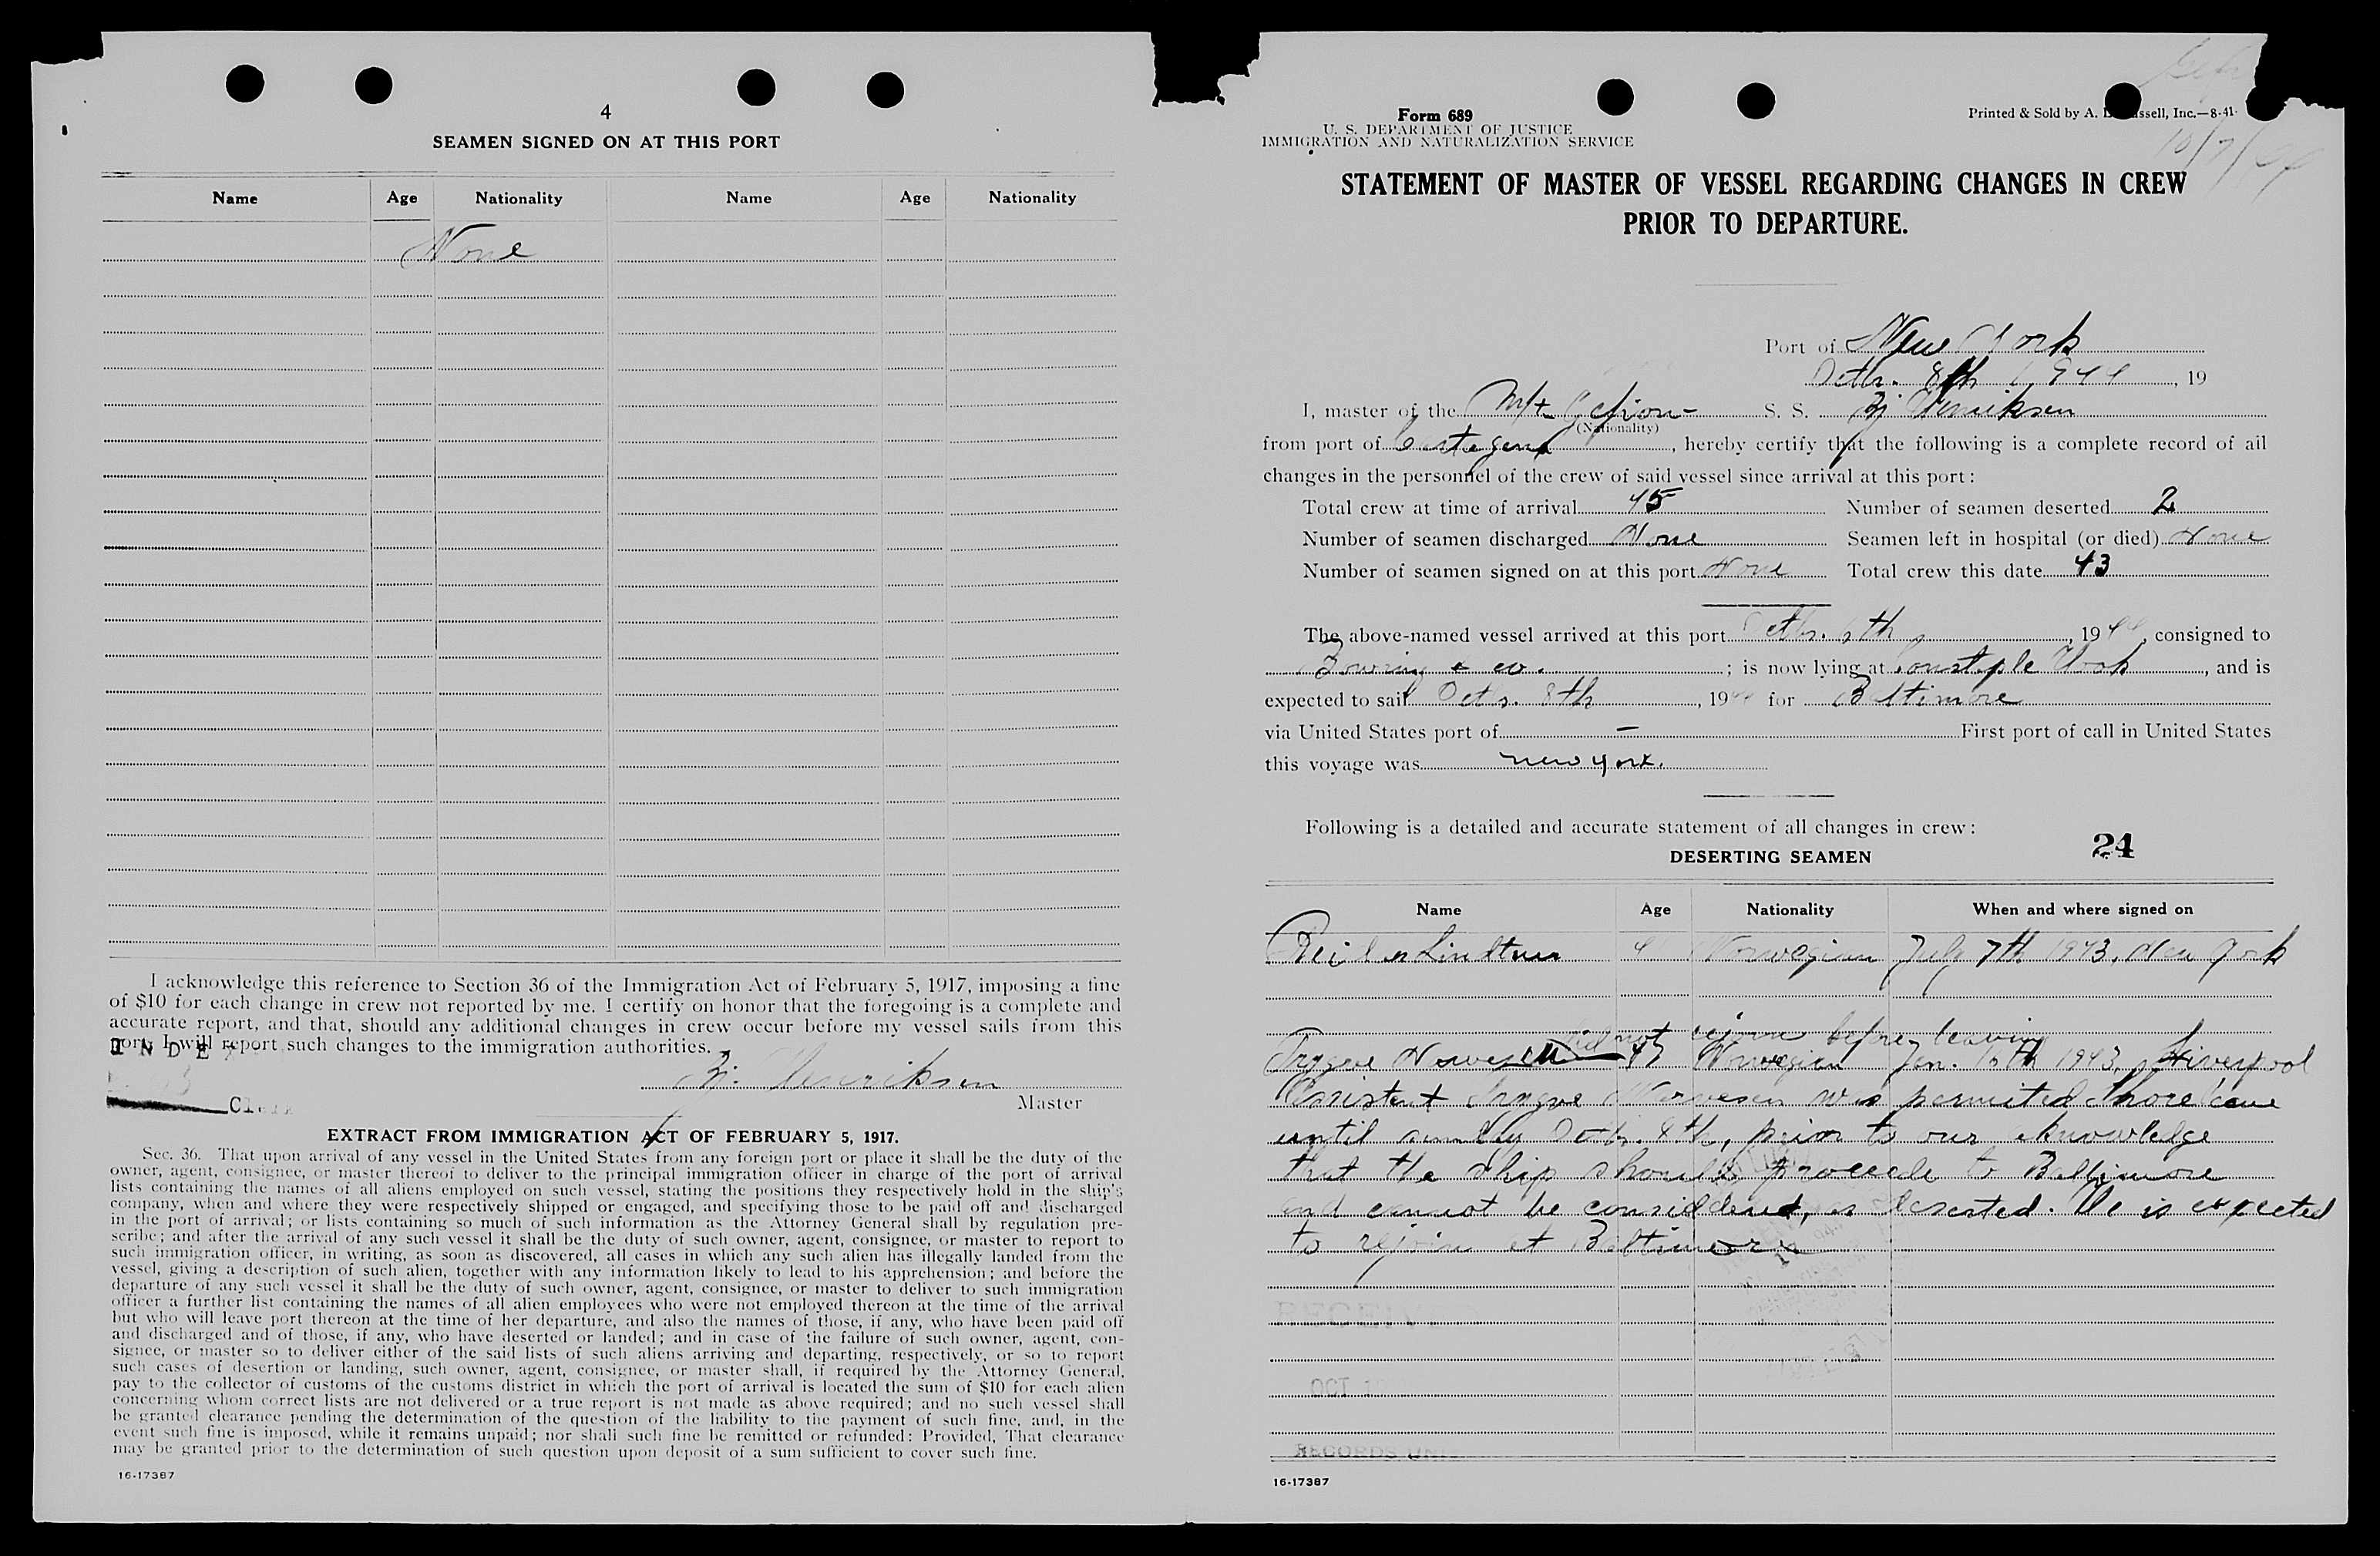 4
SEAMEN SIGNED ON AT THIS PORT
Name Age Nationality Name Age Nationality
None
I acknowledge this reference to Section 36 of the Immigration Act of February 5, 1917, imposing a fine
of $10 for each change in crew not reported by me. I certify on honor that the foregoing is a complete and
accurate report, and that, should any additional changes in crew occur before my vessel sails from this
port, I will report such changes to the immigration authorities.
Bj. Henriksen
Master
EXTRACT FROM IMMIGRATION ACT OF FEBRUARY 5, 1917.
Sec. 36. That upon arrival of any vessel in the United States from any foreign port or place it shall be the duty of the
owner, agent, consignee, or master thereof to deliver to the principal immigration officer in charge of the port of arrival
lists containing the names of all aliens employed on such vessel, stating the positions they respectively hold in the ship's
company, when and where they were respectively shipped or engaged, and specifying those to be paid off and discharged
in the port of arrival; or lists containing so much of such information as the Attorney General shall by regulation pre-
scribe; and after the arrival of any such vessel it shall be the duty of such owner, agent, consignee, or master to report to
such immigration officer, in writing, as soon as discovered, all cases in which any such alien has illegally landed from the
vessel, giving a description of such alien, together with any information likely to lead to his apprehension; and before the
departure of any such vessel it shall be the duty of such owner, agent, consignee, or master to deliver to such immigration
officer a further list containing the names of all alien employees who were not employed thereon at the time of the arrival
but who will leave port thereon at the time of her departure, and also the names of those, if any, who have been paid off
and discharged and of those, if any, who have deserted or landed; and in case of the failure of such owner, agent, con-
signee, or master so to deliver either of the said lists of such aliens arriving and departing, respectively, or so to report
such cases of desertion or landing, such owner, agent, consignee, or master shall, if required by the Attorney General,
pay to the collector of customs of the customs district in which the port of arrival is located the sum of $10 for each alien
concerning whom correct lists are not delivered or a true report is not made as above required; and no such vessel shall
be granted clearance pending the determination of the question of the liability to the payment of such fine, and, in the
event such fine is imposed, while it remains unpaid; nor shall such fine be remitted or refunded: Provided, That clearance
may be granted prior to the determination of such question upon deposit of a sum sufficient to cover such fine.
16-17387
Form 689
U. S. DEPARTMENT OF JUSTICE
IMMIGRATION AND NATURALIZATION SERVICE
Printed & Sold by A. Inc.—8-41
STATEMENT OF MASTER OF VESSEL REGARDING CHANGES IN CREW
PRIOR TO DEPARTURE.
Port of New York
Octb. 8th 1944, 19
I, master of the M/t Gefion- S. S. Bj Henriksen
(Nationality)
from port of Cartagena, hereby certify that the following is a complete record of all
changes in the personnel of the crew of said vessel since arrival at this port:
Total crew at time of arrival 45 Number of seamen deserted 2
Number of seamen discharged None Seamen left in hospital (or died) None
Number of seamen signed on at this port None Total crew this date 43
The above-named vessel arrived at this port Octb. 6th, 1944, consigned to
Bowring & co.; is now lying at Constaple Hook, and is
expected to sail Octb. 8th, 1944 for Baltimore
via United States port of - First port of call in United States
this voyage was new york.
Following is a detailed and accurate statement of all changes in crew:
DESERTING SEAMEN 24
Name Age Nationality When and where signed on
Norwegian July 7th 1943, New York
did not rejoin before leaving
Trygve 47 Norwegian Jan. 1943, Liverpool
Trygve was permited Shore leave
until sunday Octb. 8th, prior to our knowledge
that the ship should proceede to Baltimore
and cannot be considdered, as deserted. He is expected
to rejoin at Baltimore
RECEIV
OCT 1
RECORDS UNIT
16-17387